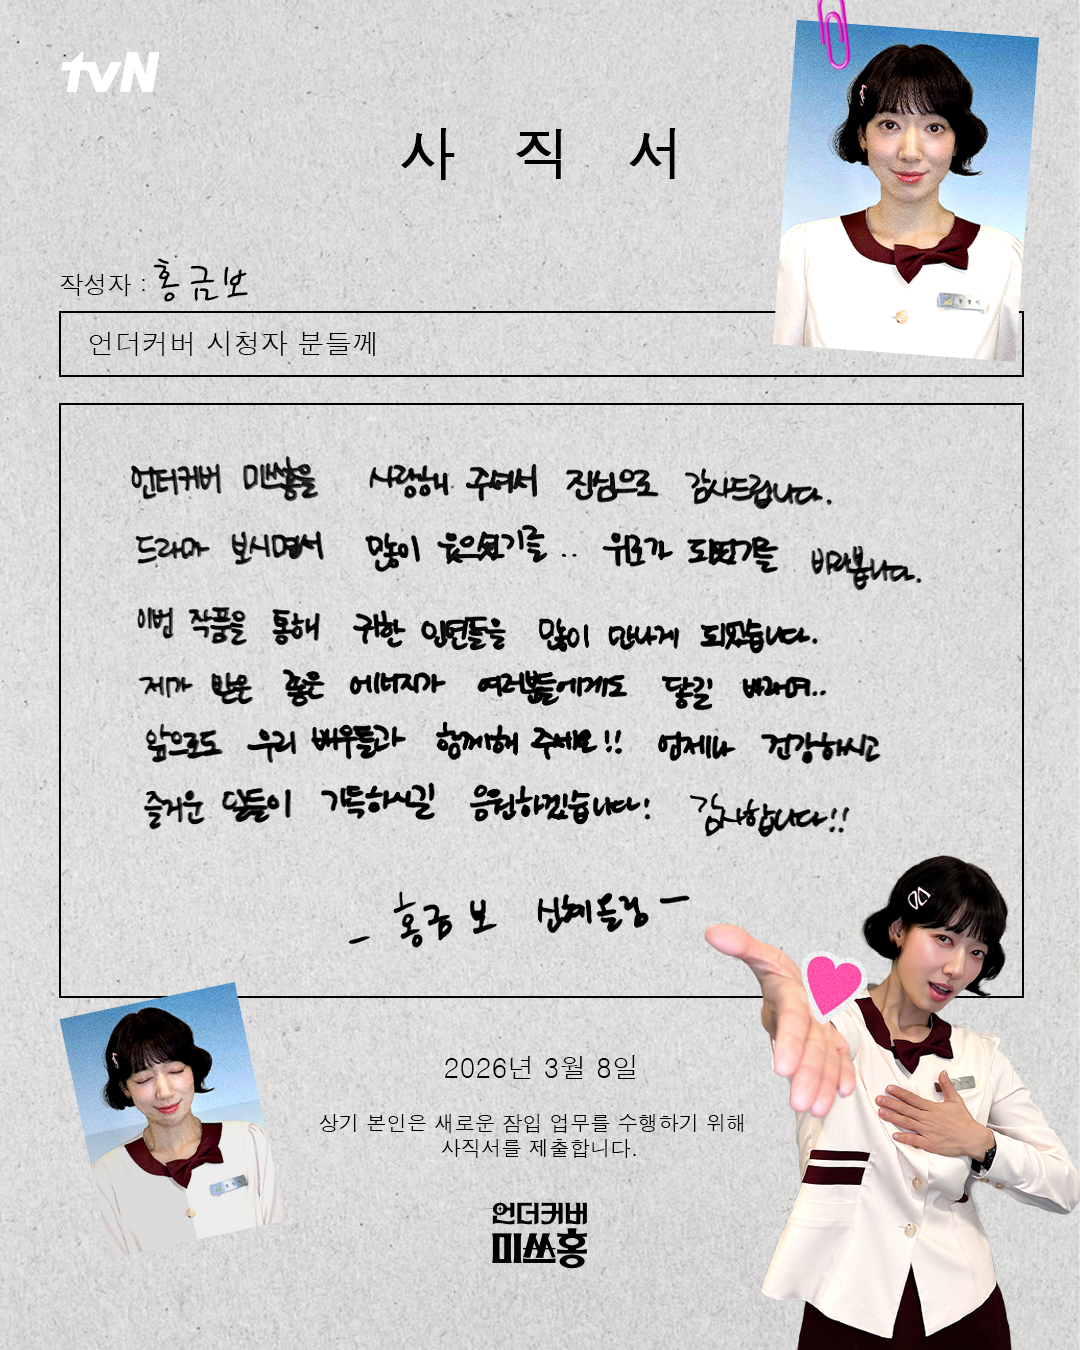 tvN
사 직 서
작성자 : 홍금보
언더커버 시청자 분들께
언더커버 미쓰홍을 사랑해 주셔서 진심으로 감사드립니다.
드라마 보시면서 많이 웃으셨기를.. 위로가 되었기를 바라봅니다.
이번 작품을 통해 귀한 인연들을 많이 만나게 되었습니다.
제가 받은 좋은 에너지가 여러분들에게도 닿길 바라며..
앞으로도 우리 배우들과 함께해 주세요!! 언제나 건강하시고
즐거운 일들이 가득하시길 응원하겠습니다! 감사합니다!!
- 홍금보 신혜올림 -
2026년 3월 8일
상기 본인은 새로운 잠입 업무를 수행하기 위해
사직서를 제출합니다.
언더커버
미쓰홍